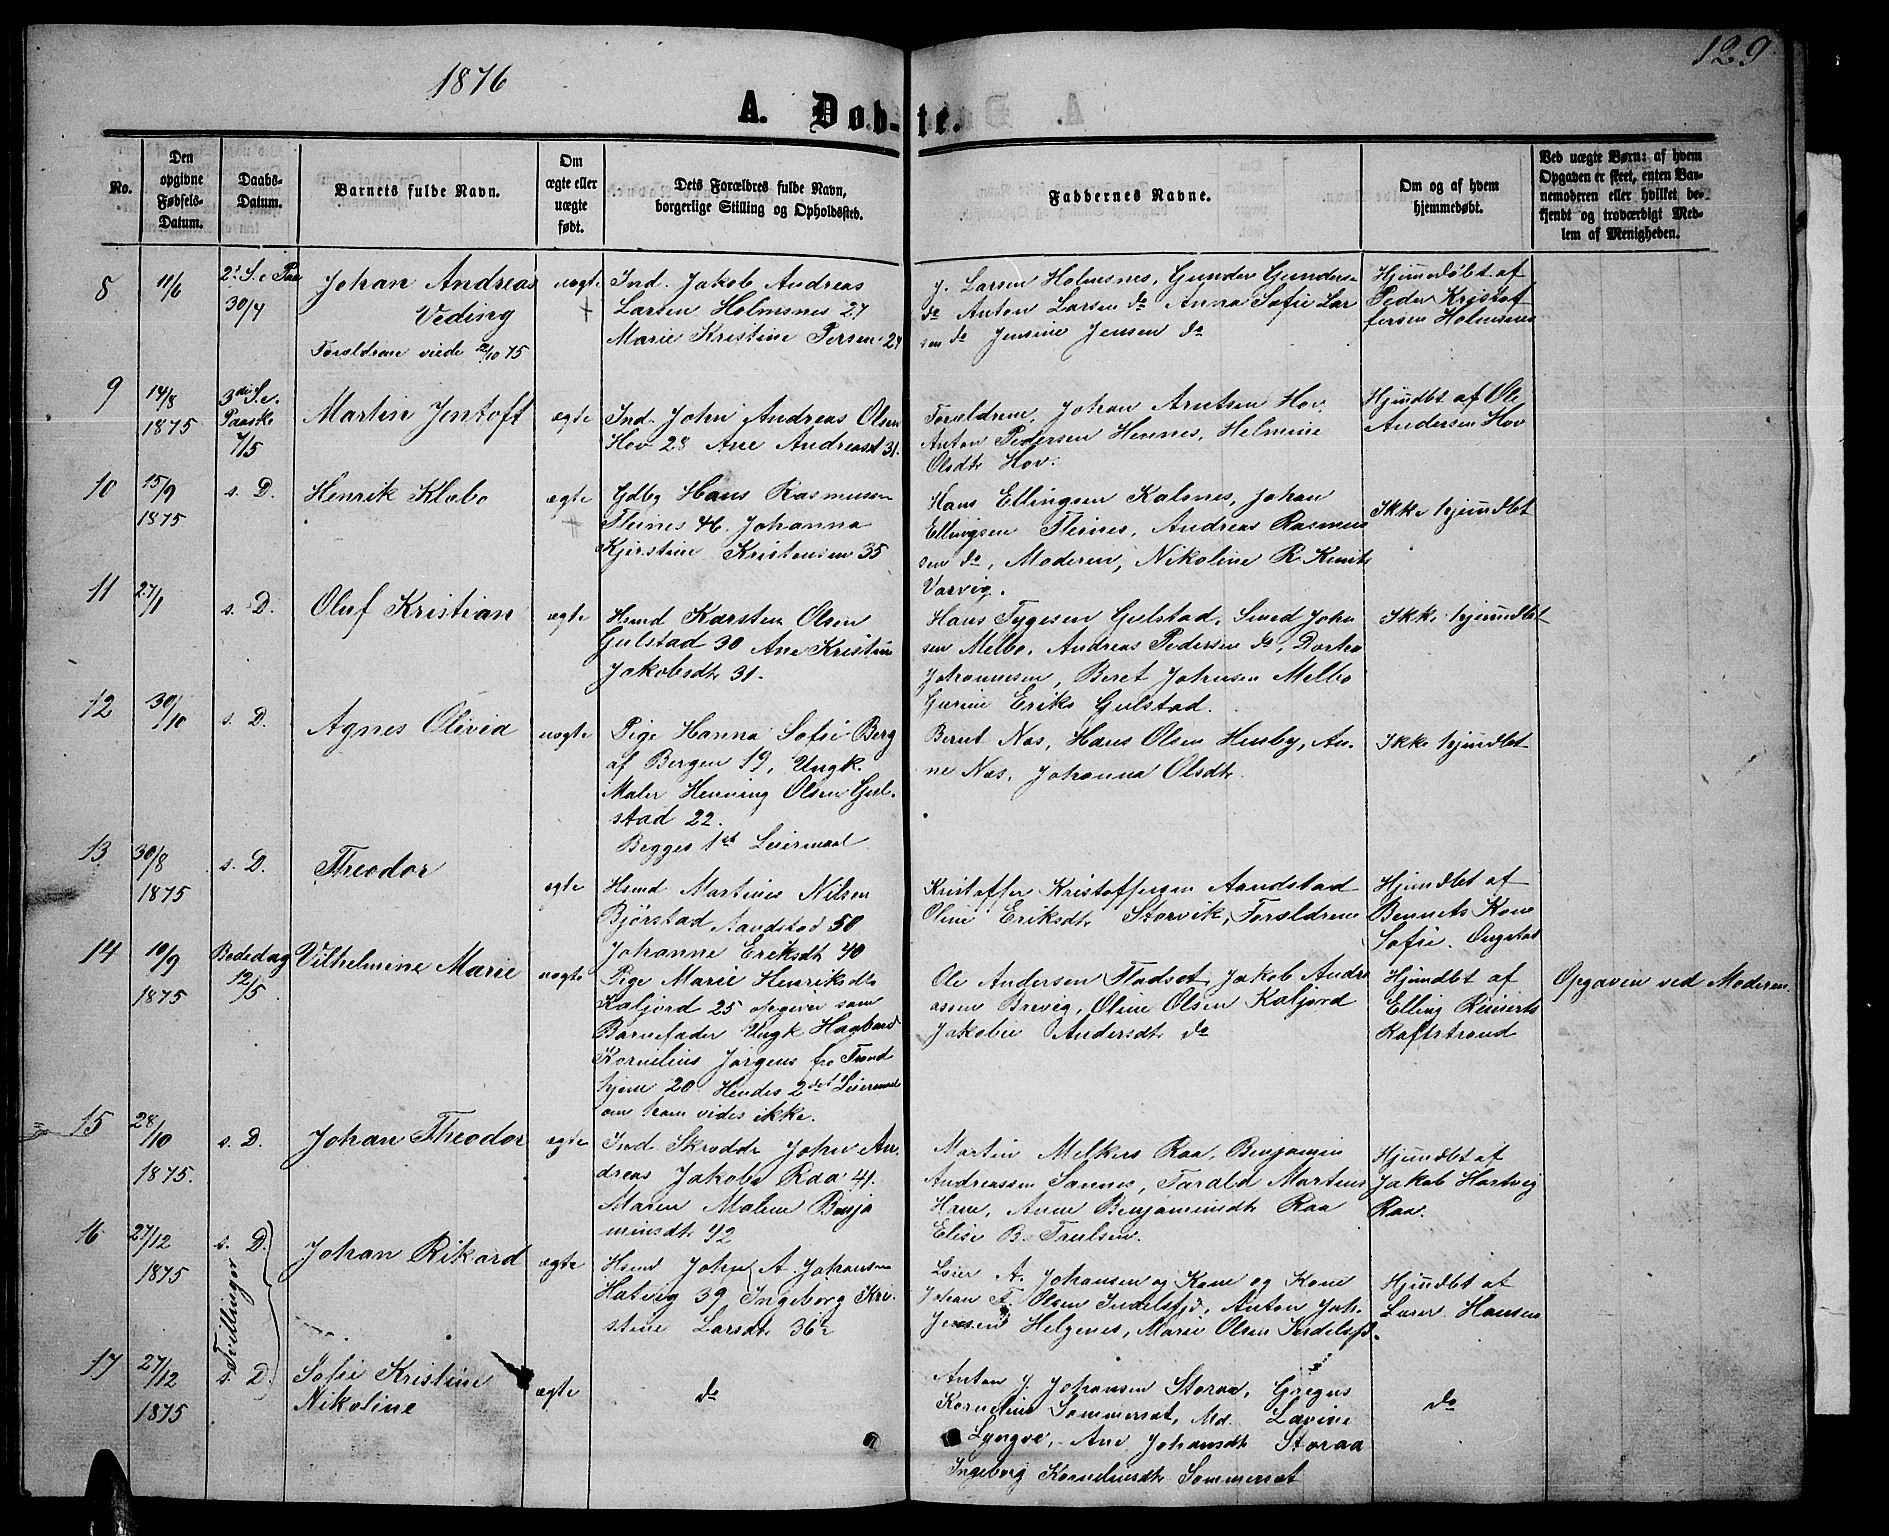 129
1876
A. Døb-te.
No.
Den opgivne Fødsels-Datum.
Daabs-Datum.
Barnets fulde Navn.
Om ægte eller uægte født.
Dets Forældres fulde Navn, borgerlige Stilling og Opholdssted.
Faddernes Navne.
Om og af hvem hjemmedøbt.
Ved uægte Børn: af hvem Opgaven er skeet, enten Barnemoderen eller hvilket bekjendt og troværdigt Medlem af Menigheden.
8
11/6
2. S. e. Paa
30/4
Johan Andreas
Veding
Forældrene viede 10 75
uægte
Ind. Jakob Andreas
Larsen Holmsnes 27
Marie Kristine Persen 24
J. Larsen Holmsnes, Gunder Gunders-
do Anton Larsen do Anna Sofie Lar
sen do Jensine Jensen do
Hjemedøbt af
Peder Kristof
fersen Holmsnes
9
14/8
1875
3die S. e.
Paaske
7/5
Martin Jentoft
ægte
Ind. John Andreas Olsen
Hov 28 Ane Andreasdt 31.
Forældrene, Johan Arntsen Hov,
Anton Pedersen Hennes, Helmine
Olsdt Hov.
Hjmdbt af Ole
Andersen Hov
10
15/9
1875
s. D.
Henrik Klæbo
ægte
Gdbg Hans Rasmussen
Fleines 46 Johanna
Kjerstine Kristensen 35
Hans Ellingsen Kalsnes, Johan
Ellingsen Fleines, Andreas Rasmus
sen do, Moderen, Nikoline R. Knuts
Varvig.
Ikke hjmdbt
11
27/1
s. D.
Oluf Kristian
ægte
Hsmd Karsten Olsen
Gulstad 30 Ane Kristine
Jakobsdt 31.
Hans Tygesen Gulstad, Smed John
sen Melbo, Andreas Pedersen do, Dorthea
Johannesen, Beret Johnsen Melbo
Gurine Eriks Gulstad.
Ikke hjemdbt
12
30/10
s. D.
Agnes Olivia
uægte
Pige Hanna Sofie Berg
af Bergen 19, Ungk.
Maler Henning Olsen Gul-
stad 22.
Begges 1st Leiermaal
Bernt Næs, Hans Olsen Husby, An-
ne Næs, Johanna Olsdt.
Ikke hjmdbt
13
30/8
1875
s. D.
Theodor
ægte
Hsmd Martines Nilsen
Bjørstad Sandstad 50
Johanne Eriksdt 40
Kristoffer Kristoffersen Sandstad
Oline Eriksdt Storvik, Forældrene
Hjmdbt af
Bennets Kone
Sofie. Ongstad
14
10/9
1875
Bededag
12/5
Vilhelmine Marie
uægte
Pige Marie Henriksdt
Kaljord 25 opgiver som
Barnefader Ungk Hagbard
Kornelius Jørgens fra Trond
hjem 20 Hendes 2det Leiermaal
om ham vides ikke.
Ole Andersen Fladset, Jakob Andre
assen Brevig, Oline Olsen Kaljord
Jakobie Andersdt do
Hjmdbt af
Elling Reinerts
Raftstrand
Opgaven ved Moderen.
15
28/10
1875.
s. D.
Johan Theodor
ægte
Ind. Skrædder John An
dreas Jakobs Raa 41.
Maren Malene Benja
minsdt 42
Martin Melkers Raa, Benjamin
Andreassen Sannes, Tarald Martins
Hem, Anne Benjaminsdt Raa
Elise B. Trulsen.
Hjmdbt af
Jakob Hartvig
Raa.
16
27/12
1875
s. D.
Tvillinger
Johan Rikard
ægte
Hsmd John A. Johansen
Hatvig 39 Ingeborg Kri-
stine Larsdt 36
A. Johansen og Kone og Kone
Johan F. Olsen Indelsfjd, Anton Joh.
Jensen Helgenes, Marie Olsen Indelsfj.
Hjmdbt af
Larer Hansen
17
27/12
1875
s. D.
Sofie Kristine
Nikoline
ægte
do
Anton J. Johansen Storaa, Gregus
Kornelius Sommersæt, Md. Lavine
Lyngve, Ane Johansdt Storaa
Ingeborg Korneliusdt Sommersæt
do